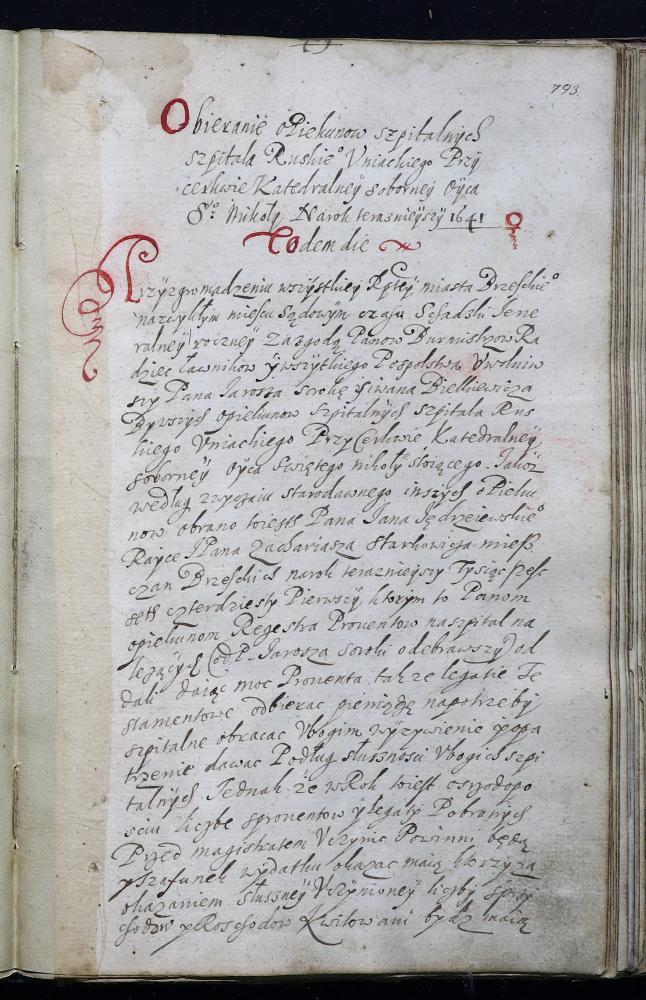 793
Obieranie oPiekunow szpitalnych
szpitala Ruskie° Vniackiego Przy
cerkwie Katedralney soborney Oyca
S° Mikoły Narok terasnieyszy 1641
Eodem die
Przyzgromadzeniu wszystkiey Rptey miasta Brzeskie°
nazwykłym miescu Sądowym czasu Sesadzki Iene
ralney roczney Zazgodą Panow Burmistrzow Ra
dziec Ławnikow y wszytkiego Pospolstwa Vwolniw
szy Pana Iarosza Sorokę y Iwana Bielkiewicza
Bywszych opiekunow szpitalnych szpitala Rus
kiego Vniackiego Przy Cerkwie Katedralney
soborney Oyca swiętego nikoły stoiącego. Iakoż
według zwyczaiu starodawnego inszych oPieku
now obrano toiest Pana Iana Iędrzeiewskie°
Rayce IPana Zachariasza Starkowicza miesz
czan Brzeskich narok teraznieyszy Tysiąc szesc
seth czterdziesty Pierwszy, ktorym to Panom
opiekunom Regestra Prouentow naszpital na
leżących (od P. Iarosza Soroki odebrawszy) od
dali daiąc moc Prouenta także legatie Te
stamentowe odbierac pieniądze napotrzeby
szpitalne obracac Vbogim wyzywienie y opa
trzenie dawac Podług słusznosci Vbogich szpi
talnych. Iednak że w Rok iest
sciu liczbe sprouentow y legaty Pobranych
Przed magistratem Vczynic Powinni będą
y szafunek wydatku okazac maią ktorzy za
okazaniem słuszney Vczynioney liczby sprzy
chodow y Roschodow Kwitowani bydz maią